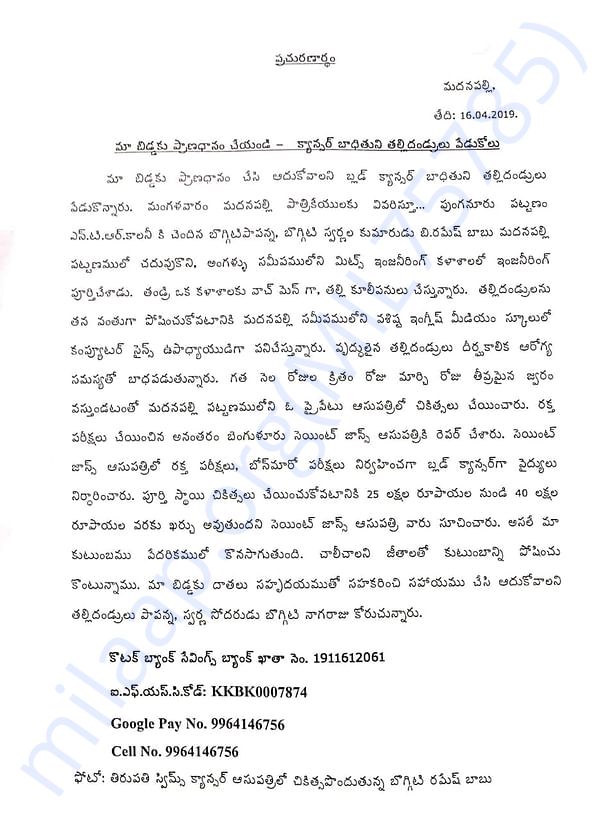 ప్రచురణార్థం
మదనపల్లి,
తేది: 16.04.2019.
మా బిడ్డకు ప్రాణధానం చేయండి – క్యాన్సర్ బాధితుని తల్లిదండ్రులు పేడుకోలు
మా బిడ్డకు ప్రాణధానం చేసి ఆదుకోవాలని బ్లడ్ క్యాన్సర్ బాధితుని తల్లిదండ్రులు
పేడుకొన్నారు. మంగళవారం మదనపల్లి పాత్రికేయులకు వివరిస్తూ... పుంగనూరు పట్టణం
ఎన్.టి.ఆర్.కాలనీ కి చెందిన బొగ్గిటిపాపన్న, బొగ్గిటి స్వర్ణల కుమారుడు బి.రమేష్ బాబు మదనపల్లి
పట్టణములో చదువుకొని, అంగళ్ళు సమీపములోని మిట్స్ ఇంజనీరింగ్ కళాశాలలో ఇంజనీరింగ్
పూర్తిచేశాడు. తండ్రి ఒక కళాశాలకు వాచ్ మెన్ గా, తల్లి కూలీపనులు చేస్తున్నారు. తల్లిదండ్రులను
తన వంతుగా పోషించుకోవటానికి మదనపల్లి సమీపములోని వశిష్ట ఇంగ్లీష్ మీడియం స్కూలులో
కంప్యూటర్ సైన్స్ ఉపాధ్యాయుడిగా పనిచేస్తున్నారు. వృద్ధులైన తల్లిదండ్రులు దీర్ఘకాలిక ఆరోగ్య
సమస్యతో బాధపడుతున్నారు. గత నెల రోజుల క్రితం రోజు మార్చి రోజు తీవ్రమైన జ్వరం
వస్తుండటంతో మదనపల్లి పట్టణములోని ఓ ప్రైవేటు ఆసుపత్రిలో చికిత్సలు చేయించారు. రక్త
పరీక్షలు చేయించిన అనంతరం బెంగుళూరు సెయింట్ జాన్స్ ఆసుపత్రికి రెపర్ చేశారు. సెయింట్
జాన్స్ ఆసుపత్రిలో రక్త పరీక్షలు, బోన్‌మారో పరీక్షలు నిర్వహించగా బ్లడ్ క్యాన్సర్‌గా వైద్యులు
నిర్ధారించారు. పూర్తి స్థాయి చికిత్సలు చేయించుకోవటానికి 25 లక్షల రూపాయల నుండి 40 లక్షల
రూపాయల వరకు ఖర్చు అవుతుందని సెయింట్ జాన్స్ ఆసుపత్రి వారు సూచించారు. అసలే మా
కుటుంబము పేదరికములో కొనసాగుతుంది. చాలీచాలని జీతాలతో కుటుంబాన్ని పోషించు
కొంటున్నాము. మా బిడ్డకు దాతలు సహృదయముతో సహకరించి సహాయము చేసి ఆదుకోవాలని
తల్లిదండ్రులు పాపన్న, స్వర్ణ సోదరుడు బొగ్గిటి నాగరాజు కోరుచున్నారు.
కొటక్ బ్యాంక్ సేవింగ్స్ బ్యాంక్ ఖాతా నెం. 1911612061
ఐ.ఎఫ్.యస్.సి.కోడ్: KKBK0007874
Google Pay No. 9964146756
Cell No. 9964146756
ఫోటో: తిరుపతి స్విమ్స్ క్యాన్సర్ ఆసుపత్రిలో చికిత్సపొందుతున్న బొగ్గిటి రమేష్ బాబు
milaap.org(MIL75785)